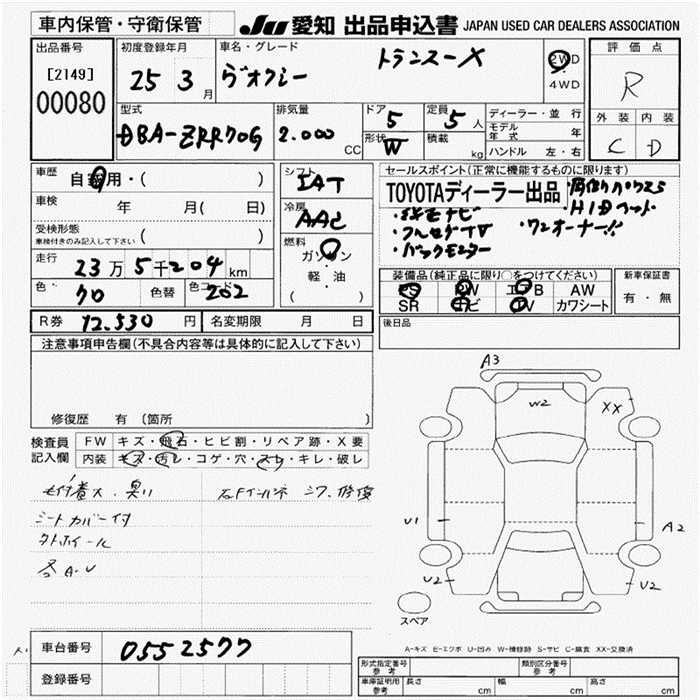 車内保管・守衛保管
JU 愛知 出品申込書 JAPAN USED CAR DEALERS ASSOCIATION
出品番号
[2149]
00080
初度登録年月
25 3 月
車名・グレード
ヴオクシー トランスーX
2WD・4WD
評価点
R
外装 内装
C D
型式
DBA-ZRR70G
排気量
2.000 CC
ドア 5
形状 W
定員 5 人
積載 kg
ディーラー・並行
モデル年式 年
ハンドル 左・右
車歴 自家用・( )
車検 年 月( 日)
受検形態
車検付きのみ記入して下さい ( )
走行 23万5千204km
色 クロ 色替 色コード 202
シフト IAT
冷房 AAC
燃料
ガソリン
軽・油
( )
セールスポイント(正常に機能するものに限ります)
TOYOTAディーラー出品
・純正ナビ
・フルセグTV
・バックモニター
・両側パワスラ
・HIDヘッド
・ワンオーナー!!
装備品(純正品に限り○をつけてください)
PS PW エアB AW
SR ナビ TV カワシート
新車保証書
有・無
R券 12.530 円 名変期限 月 日
後日品
注意事項申告欄(不具合内容等は具体的に記入して下さい)
修復歴 有 〔箇所 〕
検査員記入欄
FW キズ・飛石・ヒビ割・リペア跡・X要
内装 キズ・汚レ・コゲ・穴・スレ・キレ・破レ
シートカバー付
タテホイール
各A.U
A3
W2
XX
U1
A2
U2
U2
スペア
A-キズ E-エクボ U-凹み W-補修跡 S-サビ C-腐食 XX-交換済
車台番号 0552577
登録番号
形式指定番号 参考
類別区分番号 参考
車庫証明用 参考 長さ cm 幅 cm 高さ cm